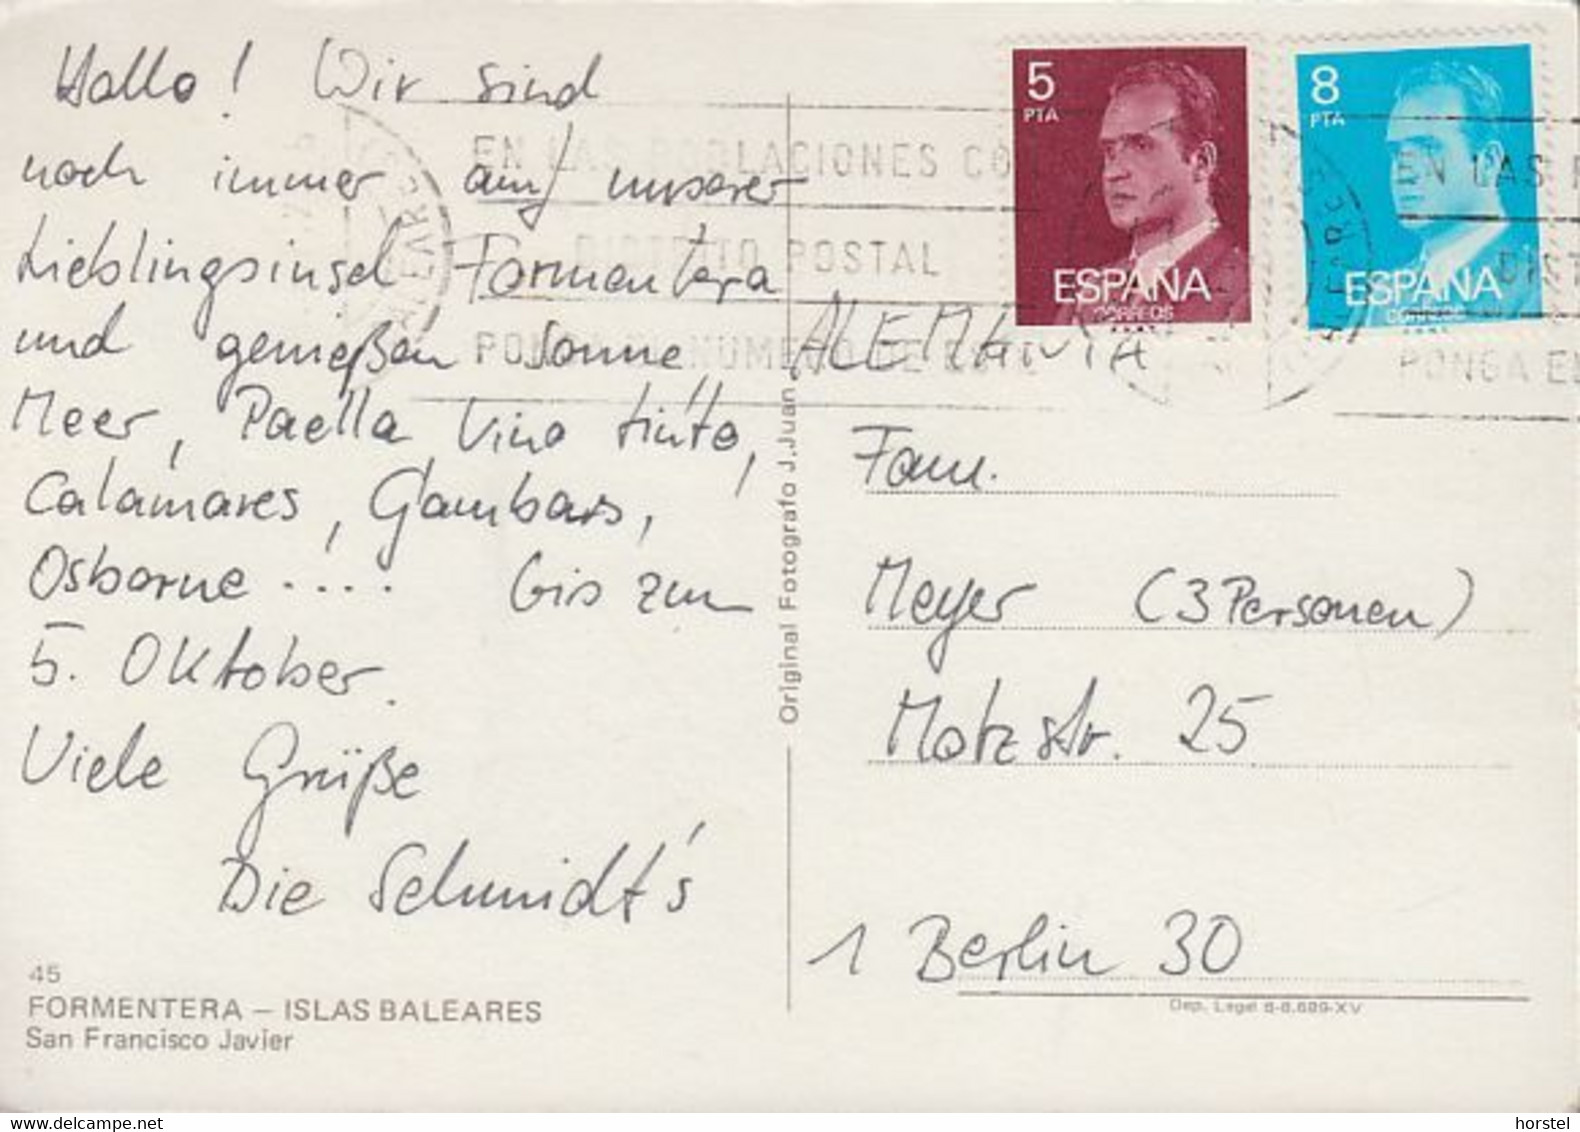 Hallo! Wir sind
noch immer auf unserer
Lieblingsinsel Formentera
und genießen Sonne
Meer, Paella Vino tinto,
Calamares, Gambas,
Osborne .... bis zum
5. Oktober.
Viele Grüße
Die Schmidt's
45
FORMENTERA – ISLAS BALEARES
San Francisco Javier
Original Fotografo J. Juan
5
PTA
ESPAÑA
CORREOS
8
PTA
ESPAÑA
CORREOS
EN LAS POBLACIONES CON
DISTRITO POSTAL
PONGA NUMERO DE ESTE
EN LAS P
DIST
PONGA EN
ALEMANIA
Fam.
Meyer (3 Personen)
Motzstr. 25
1 Berlin 30
Dep. Legal B-8.689-XV
horstel